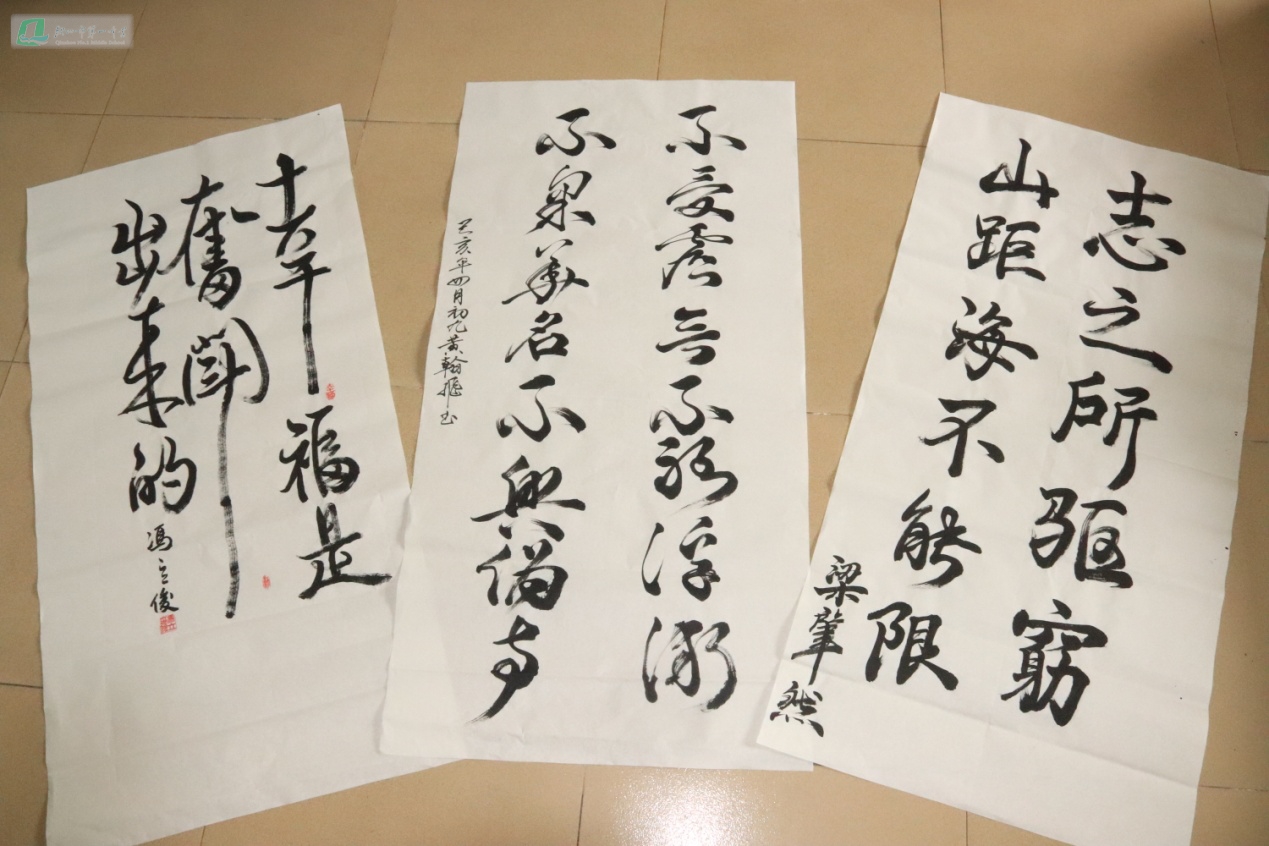 志之所驱窮
山距海不能限
梁肇然
不受虚言不聽浮術
不采華名不興偽事
己亥年四月初九黄翰书
幸福是
奮鬥
出来的
馮立俊